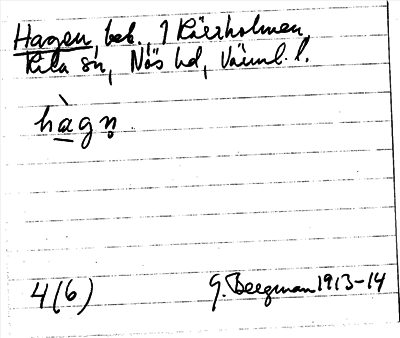 Hagen, beb. 1 Råerholmen,
Kila sn, Näs hd, Värml. l.
hàgn̥
4(6) G. Bergman 1913-14